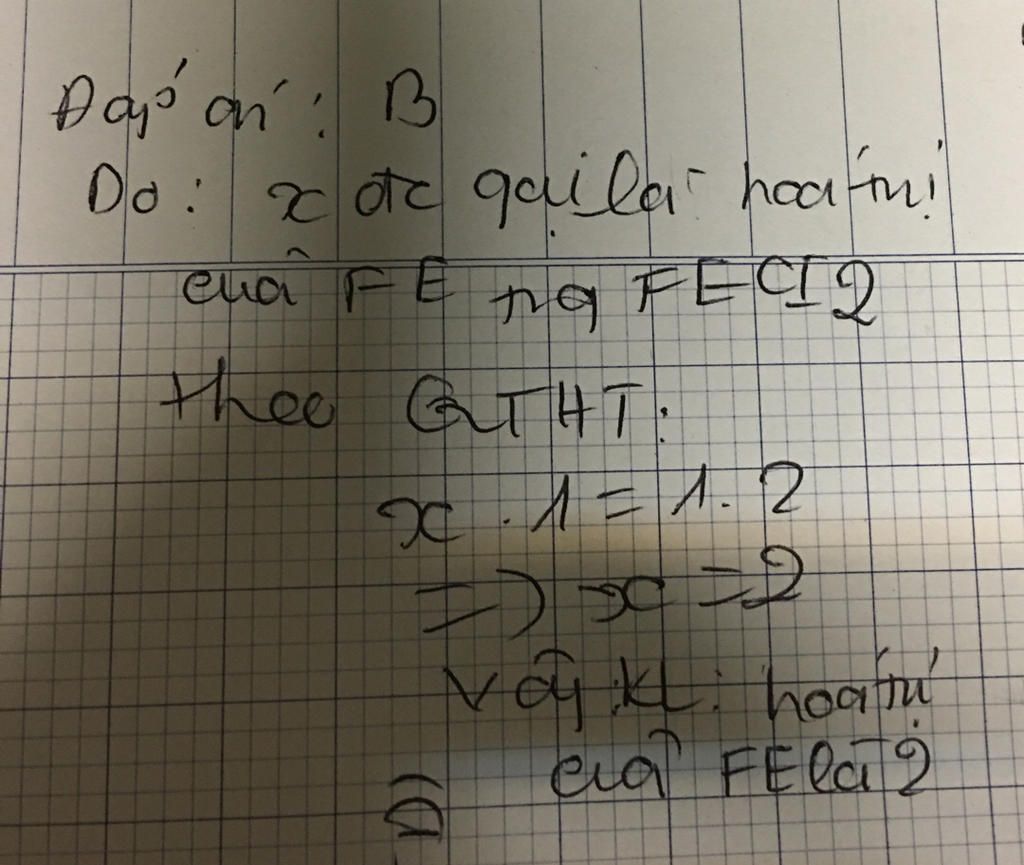 Đáp án: B
Do: x đc gọi là hoá trị
của FE trg FECI2
theo QTHT:
x . 1 = 1. 2
=> x = 2
Vậy KL: hoá trị
của FE là 2